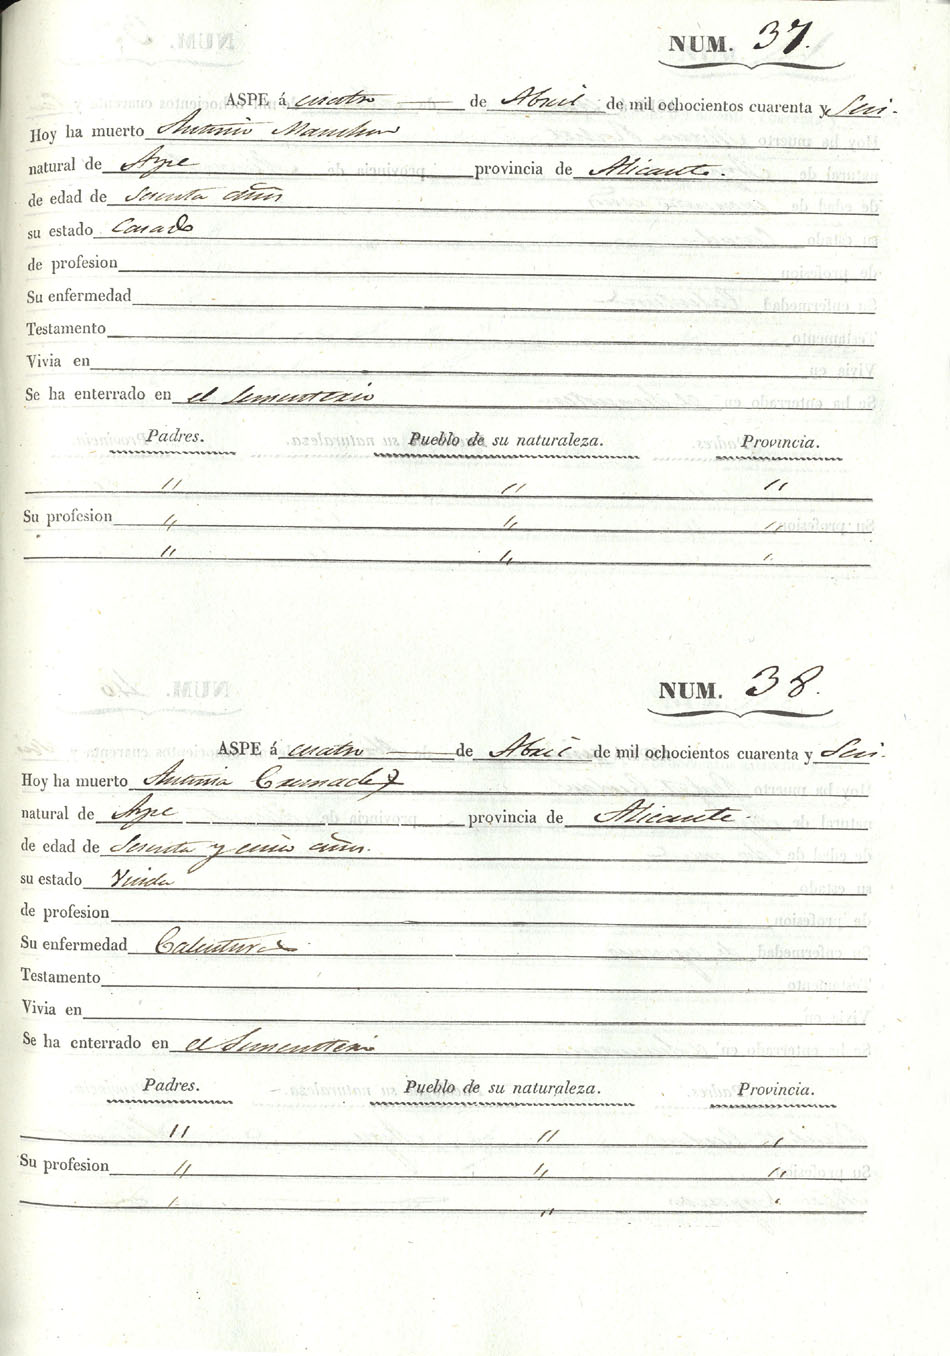 NUM. 37.
ASPE á cuatro de Abril de mil ochocientos cuarenta y Seis.
Hoy ha muerto Antonio
natural de Aspe provincia de Alicante.
de edad de Sesenta años
su estado Casado
de profesion
Su enfermedad
Testamento
Vivia en
Se ha enterrado en el Sementerio
Padres. Pueblo de su naturaleza. Provincia.
" " "
Su profesion " " "
" " "
NUM. 38.
ASPE á cuatro de Abril de mil ochocientos cuarenta y Seis.
Hoy ha muerto Antonia
natural de Aspe provincia de Alicante.
de edad de Sesenta y cinco años.
su estado Viuda
de profesion
Su enfermedad Calentura
Testamento
Vivia en
Se ha enterrado en el Sementerio
Padres. Pueblo de su naturaleza. Provincia.
" " "
Su profesion " " "
" " "